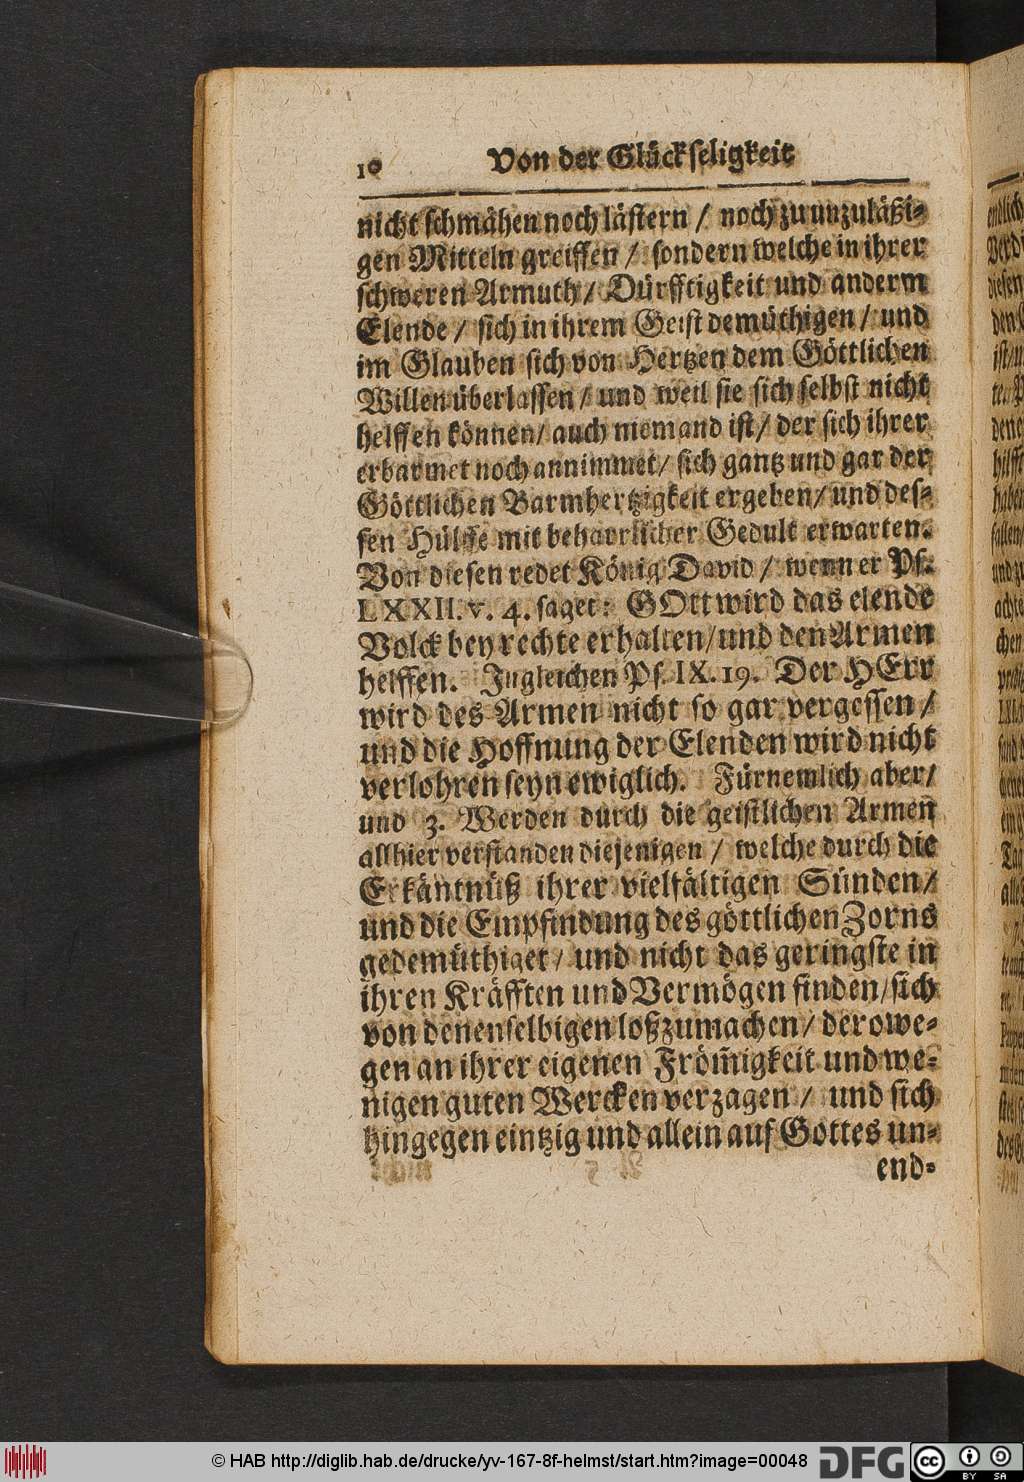 10 Von der Glückseligkeit
nicht schmähen noch lästern / noch zu unzuläßi-
gen Mitteln greiffen / sondern welche in ihrer
schweren Armuth / Dürfftigkeit und anderm
Elende / sich in ihrem Geist demüthigen / und
im Glauben sich von Hertzen dem Göttlichen
Willen überlassen / und weil sie sich selbst nicht
helffen können / auch niemand ist / der sich ihrer
erbarmet noch annimmet / sich gantz und gar der
Göttlichen Barmhertzigkeit ergeben / und des-
sen Hülffe mit beharrlicher Gedult erwarten.
Von diesen redet König David / wenn er Ps.
LXXII. v. 4. saget: GOtt wird das elende
Volck bey rechte erhalten / und den Armen
helffen. Ingleichen Ps. IX. 19. Der HErr
wird des Armen nicht so gar vergessen /
und die Hoffnung der Elenden wird nicht
verlohren seyn ewiglich. Fürnemlich aber /
und 3. Werden durch die geistlichen Armen
allhier verstanden diejenigen / welche durch die
Erkäntnüß ihrer vielfältigen Sünden /
und die Empfindung des göttlichen Zorns
gedemüthiget / und nicht das geringste in
ihren Kräfften und Vermögen finden / sich
von denenselbigen loßzumachen / derowe-
gen an ihrer eigenen From̄igkeit und we-
nigen guten Wercken verzagen / und sich
hingegen eintzig und allein auf Gottes un-
end-
© HAB http://diglib.hab.de/drucke/yv-167-8f-helmst/start.htm?image=00048
DFG
cc
BY SA